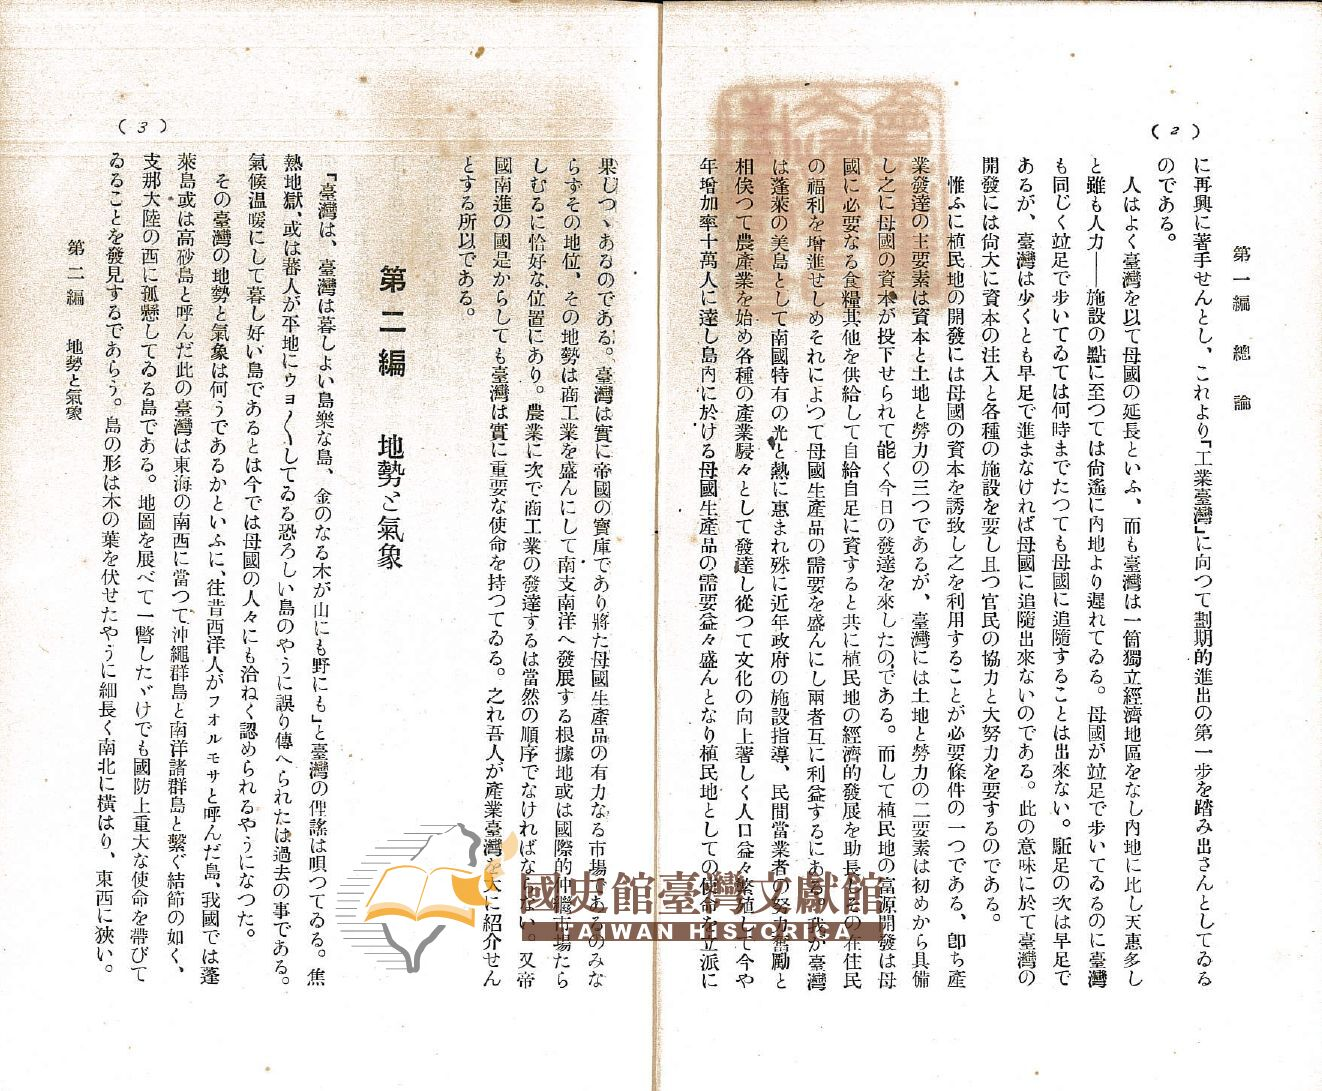 (2)
第一編 總論
に再興に著手せんとし、これより「工業臺灣」に向つて劃期的進出の第一步を踏み出さんとしてゐる
のである。
人はよく臺灣を以て母國の延長といふ、而も臺灣は一箇獨立經濟地區をなし內地に比し天惠多し
と雖も人力――施設の點に至つては尙遙に內地より遲れてゐる。母國が竝足で步いてゐるのに臺灣
も同じく竝足で步いてゐては何時までたつても母國に追隨することは出來ない。駈足の次は早足で
あるが、臺灣は少くとも早足で進まなければ母國に追隨出來ないのである。此の意味に於て臺灣の
開發には尙大に資本の注入と各種の施設を要し且つ官民の協力と大努力を要するのである。
惟ふに植民地の開發には母國の資本を誘致し之を利用することが必要條件の一つである、卽ち產
業發達の主要素は資本と土地と勞力の三つであるが、臺灣には土地と勞力の二要素は初めから具備
し之に母國の資本が投下せられて能く今日の發達を來したのである。而して植民地の富源開發は母
國に必要なる食糧其他を供給して自給自足に資すると共に植民地の經濟的發展を助長しその在住民
の福利を增進せしめそれによつて母國生產品の需要を盛んにし兩者互に利益するにある。我が臺灣
は蓬萊の美島として南國特有の光と熱に惠まれ殊に近年政府の施設指導、民間當業者の努力奮勵と
相俟つて農產業を始め各種の產業駸々として發達し從つて文化の向上著しく人口益々繁殖して今や
年增加率十萬人に達し島內に於ける母國生產品の需要益々盛んとなり植民地としての使命を立派に
(3)
果しつゝあるのである。臺灣は實に帝國の寶庫であり將た母國生產品の有力なる市場であるのみな
らずその地位、その地勢は商工業を盛んにして南支南洋へ發展する根據地或は國際的仲繼市場たら
しむるに恰好な位置にあり。農業に次で商工業の發達するは當然の順序でなければならない。又帝
國南進の國是からしても臺灣は實に重要な使命を持つてゐる。之れ吾人が產業臺灣を大に紹介せん
とする所以である。
第二編 地勢と氣象
「臺灣は、臺灣は暮しよい島樂な島、金のなる木が山にも野にも」と臺灣の俚謠は唄つてゐる。焦
熱地獄、或は蕃人が平地にウヨ〱してゐる恐ろしい島のやうに誤り傳へられたは過去の事である。
氣候溫暖にして暮し好い島であるとは今では母國の人々にも洽ねく認められるやうになつた。
その臺灣の地勢と氣象は何うであるかといふに、往昔西洋人がフォルモサと呼んだ島、我國では蓬
萊島或は高砂島と呼んだ此の臺灣は東海の南西に當つて沖繩群島と南洋諸群島と繫ぐ結節の如く、
支那大陸の西に孤懸してゐる島である。地圖を展べて一瞥したゞけでも國防上重大な使命を帶びて
ゐることを發見するであらう。島の形は木の葉を伏せたやうに細長く南北に橫はり、東西に狹い。
第二編 地勢と氣象
國史館臺灣文獻館
TAIWAN HISTORICA